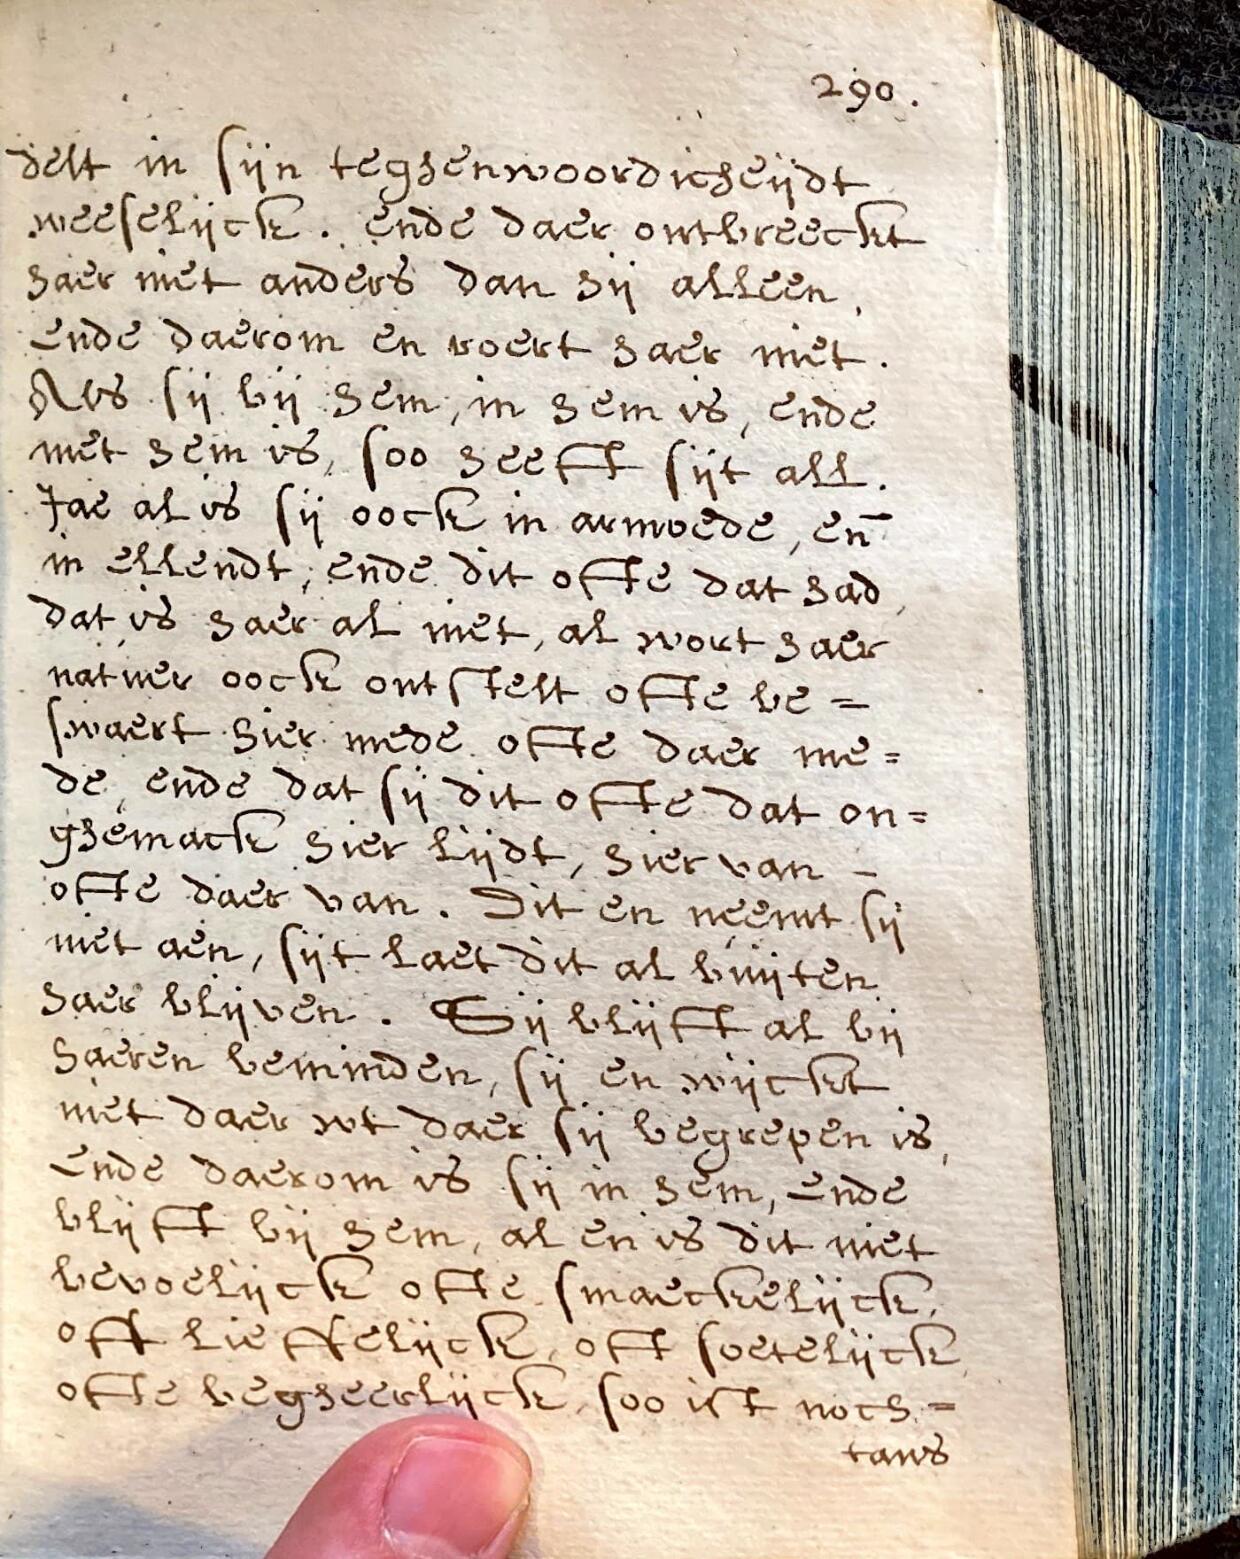 290.
delt in sijn teghenwoordicheijdt
weeselijck. ende daer ontbreeckt
haer niet anders dan hij alleen,
ende daerom en roert haer niet.
Als sij bij hem, in hem is, ende
met hem is, soo heeft sijt all.
Jae al is sij oock in armoede, en̄
in ellendt, ende dit ofte dat had,
dat is haer al niet, al wort haer
natuer oock ontstelt ofte be=
swaert hier mede ofte daer me=
de, ende dat sij dit ofte dat on=
ghemack hier lijdt, hier van -
ofte daer van. Dit en neemt sij
niet aen, sijt laet dit al buijten
haer blijven. Sij blijft al bij
haeren beminden, sij en wijckt
niet daer wt daer sij begrepen is,
ende daerom is sij in hem, ende
blijft bij hem, al en is dit niet
bevoelijck ofte smaeckelijck,
oft lieffelijck, oft soetelijck,
ofte begheerlijck, soo ist noch=
tans